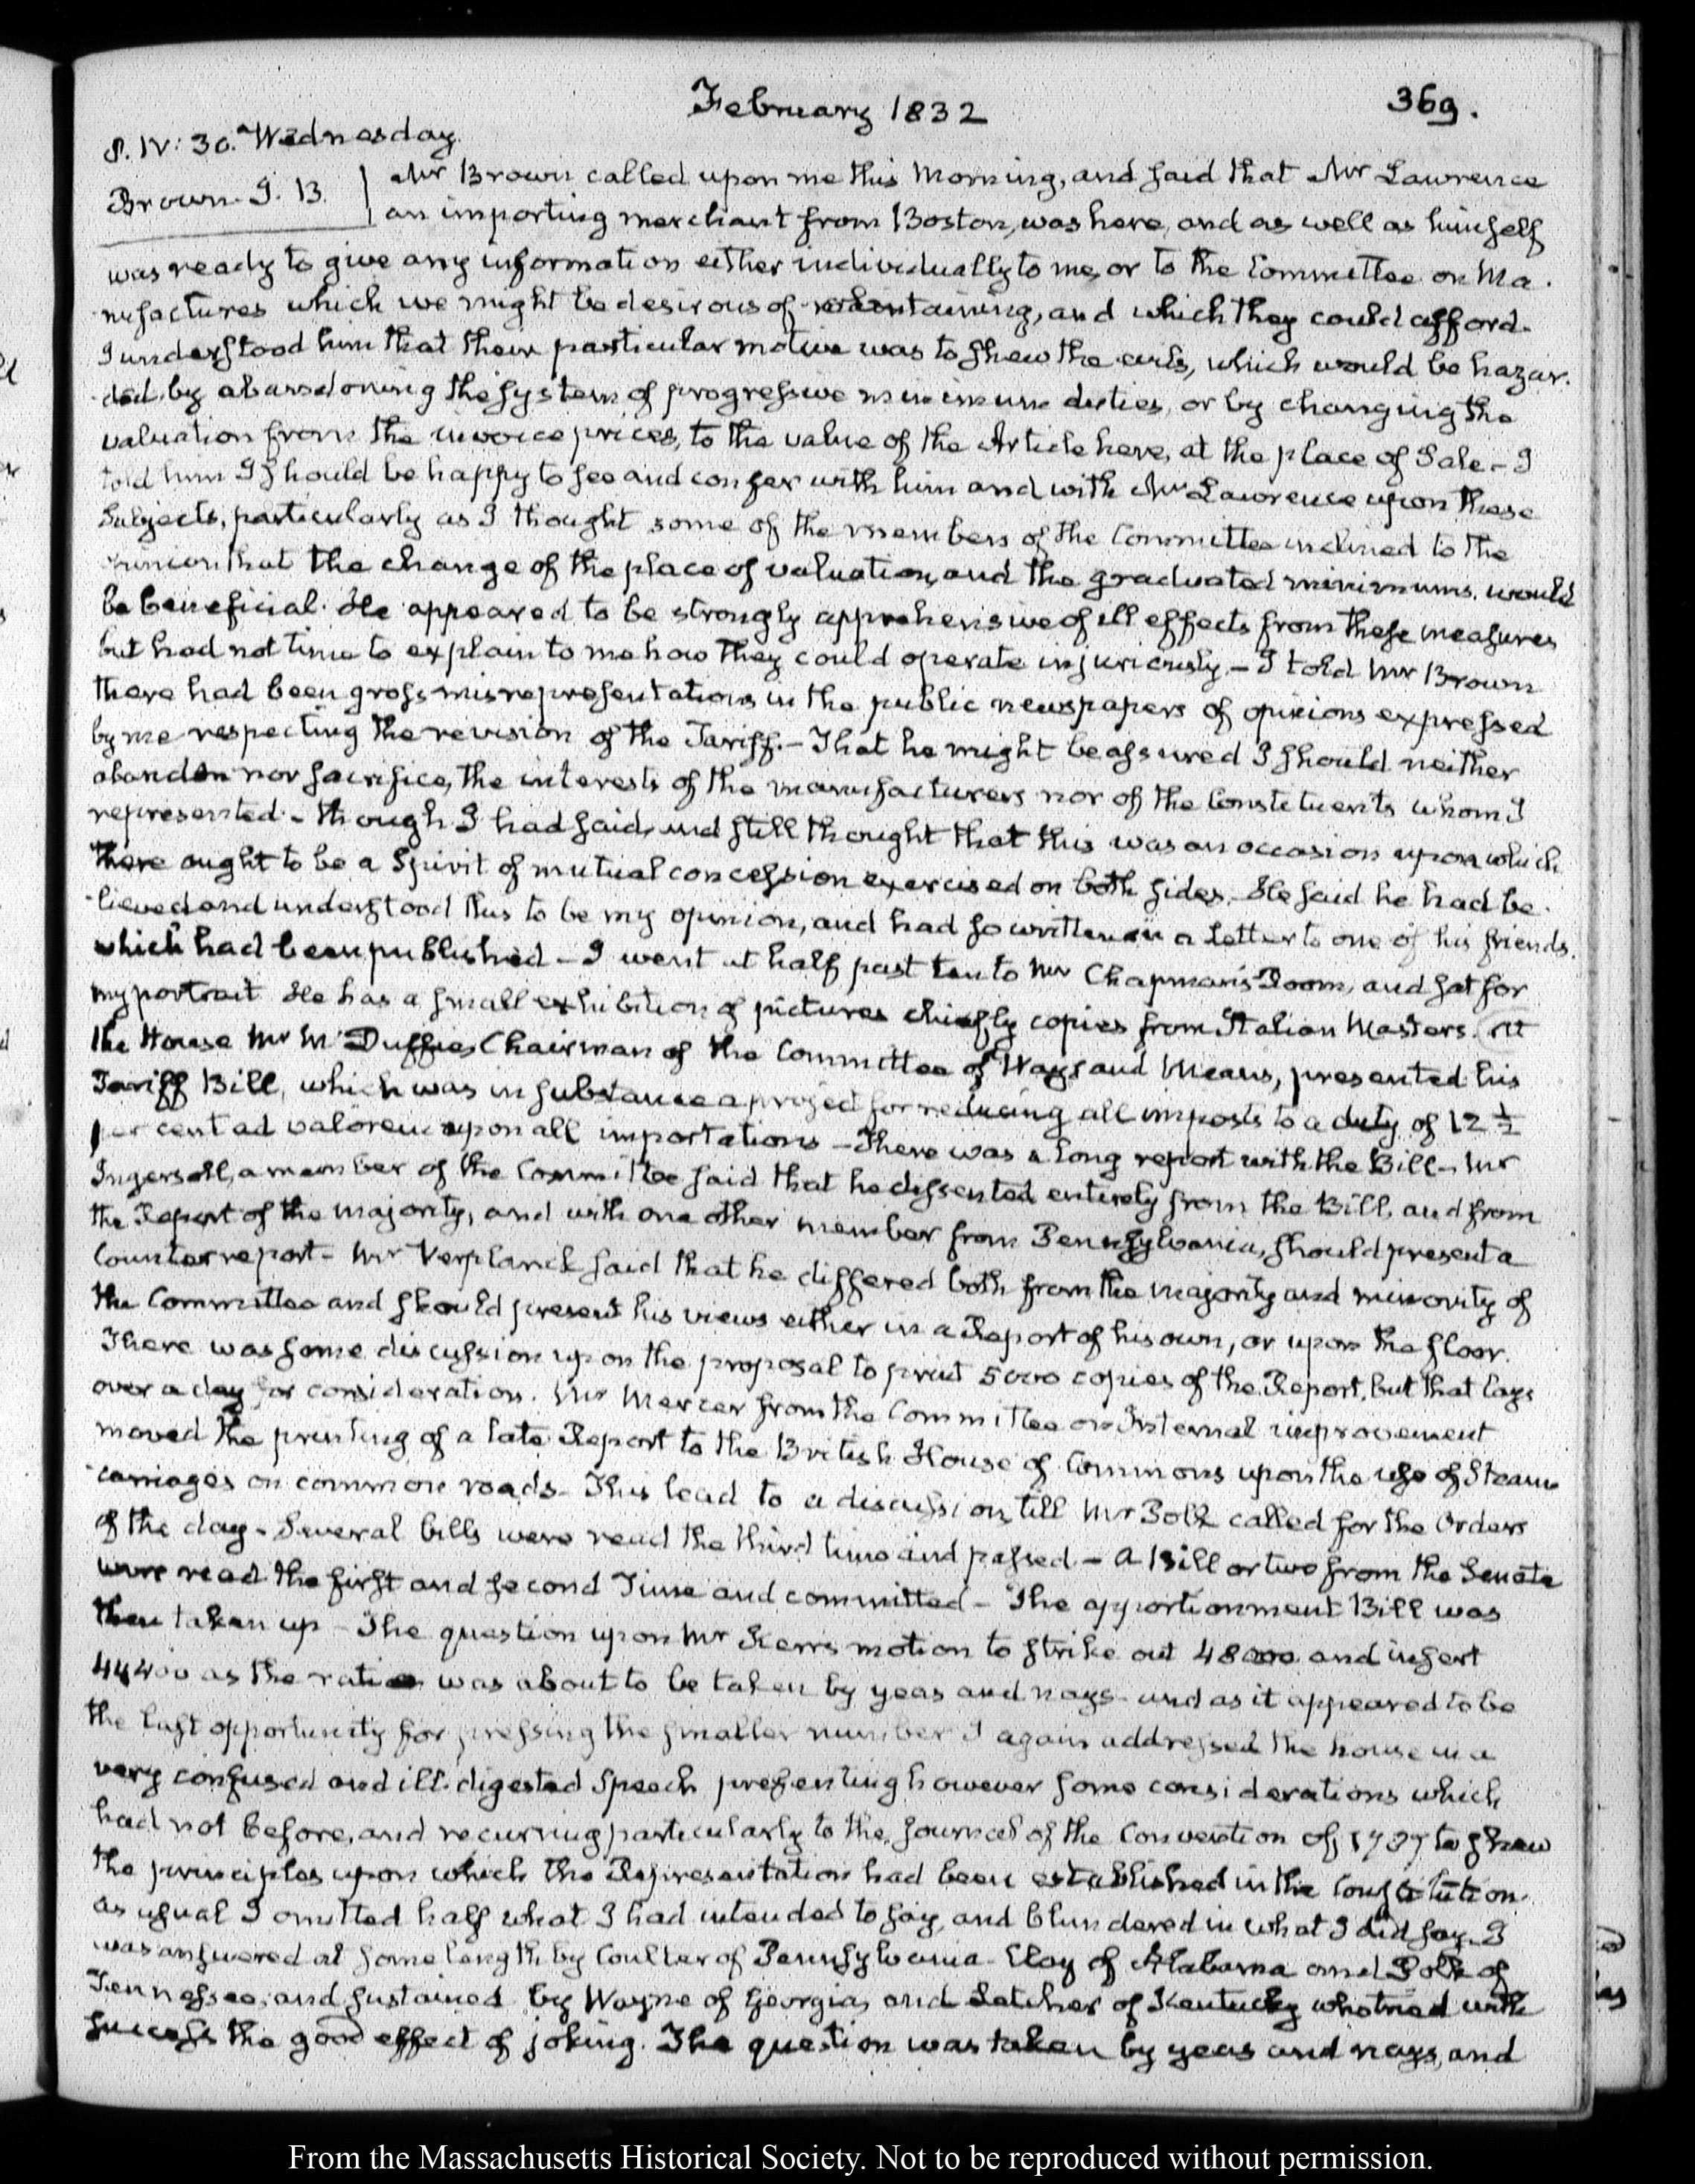 February 1832
369.
8. IV: 30. Wednesday.
Brown. J. B.
Mr Brown called upon me this Morning, and said that Mr Lawrence
an importing merchant from Boston, was here, and as well as himself
was ready to give any information either individually to me, or to the Committee on Ma-
nufactures which we might be desirous of and which they could afford.
I understood him that their particular motive was to shew the evils, which would be hazar-
ded, by abandoning the system of progressive minimum duties, or by changing the
valuation from the invoice prices, to the value of the Article here, at the place of Sale – I
told him I should be happy to see and confer with him and with Mr Lawrence upon these
Subjects, particularly as I thought some of the members of the Committee inclined to the
opinion that the change of the place of valuation, and the graduated minimums, would
be beneficial. He appeared to be strongly apprehensive of ill effects from these measures
but had not time to explain to me how they could operate injuriously – I told Mr Brown
there had been gross misrepresentations in the public newspapers of opinions expressed
by me respecting the revision of the Tariff. – That he might be assured I should neither
abandon nor sacrifice, the interests of the manufacturers nor of the Constituents whom I
represented – though I had said, and still thought that this was an occasion upon which
there ought to be a Spirit of mutual concession exercised on both sides. He said he had be-
lieved and understood this to be my opinion, and had so written in a letter to one of his friends,
which had been published – I went at half past ten to Mr Chapman's Room, and sat for
my portrait. He has a small exhibition of pictures chiefly copies from Italian Masters. At
the House Mr McDuffie, Chairman of the Committee of Ways and Means, presented his
Tariff Bill, which was in substance a project for reducing all imposts to a duty of 12 ½
per cent ad valorem upon all importations – There was a long report with the Bill – Mr
Ingersoll, a member of the Committee said that he dissented entirely from the Bill, and from
the Report of the majority, and with one other member from Pennsylvania, should present a
Counter report – Mr Verplanck said that he differed both from the majority and minority of
the Committee and should present his views either in a Report of his own, or upon the floor.
There was some discussion upon the proposal to print 5000 copies of the Report, but that lays
over a day for consideration. Mr Mercer from the Committee on Internal improvement
moved the printing of a late Report to the British House of Commons upon the use of Steam
carriages on common roads – This lead to a discussion, till Mr Polk called for the Orders
of the day – Several bills were read the third time and passed – A Bill or two from the Senate
were read the first and second Time and committed – The apportionment Bill was
then taken up – The question upon Mr Kerr's motion to strike out 48000 and insert
44400 as the ratio was about to be taken by yeas and nays – and as it appeared to be
the last opportunity for pressing the smaller number I again addressed the house in a
very confused and ill-digested Speech presenting however some considerations which
had not before, and recurring particularly to the Journal of the Convention of 1787 to shew
the principles upon which the Representation had been established in the Constitution.
as usual I omitted half what I had intended to say, and blundered in what I did say – I
was answered at some length by Coulter of Pennsylvania – Clay of Alabama and Polk of
Tennessee, and sustained by Wayne of Georgia, and Letcher of Kentucky who tried with
success the good effect of joking. The question was taken by yeas and nays, and
From the Massachusetts Historical Society. Not to be reproduced without permission.